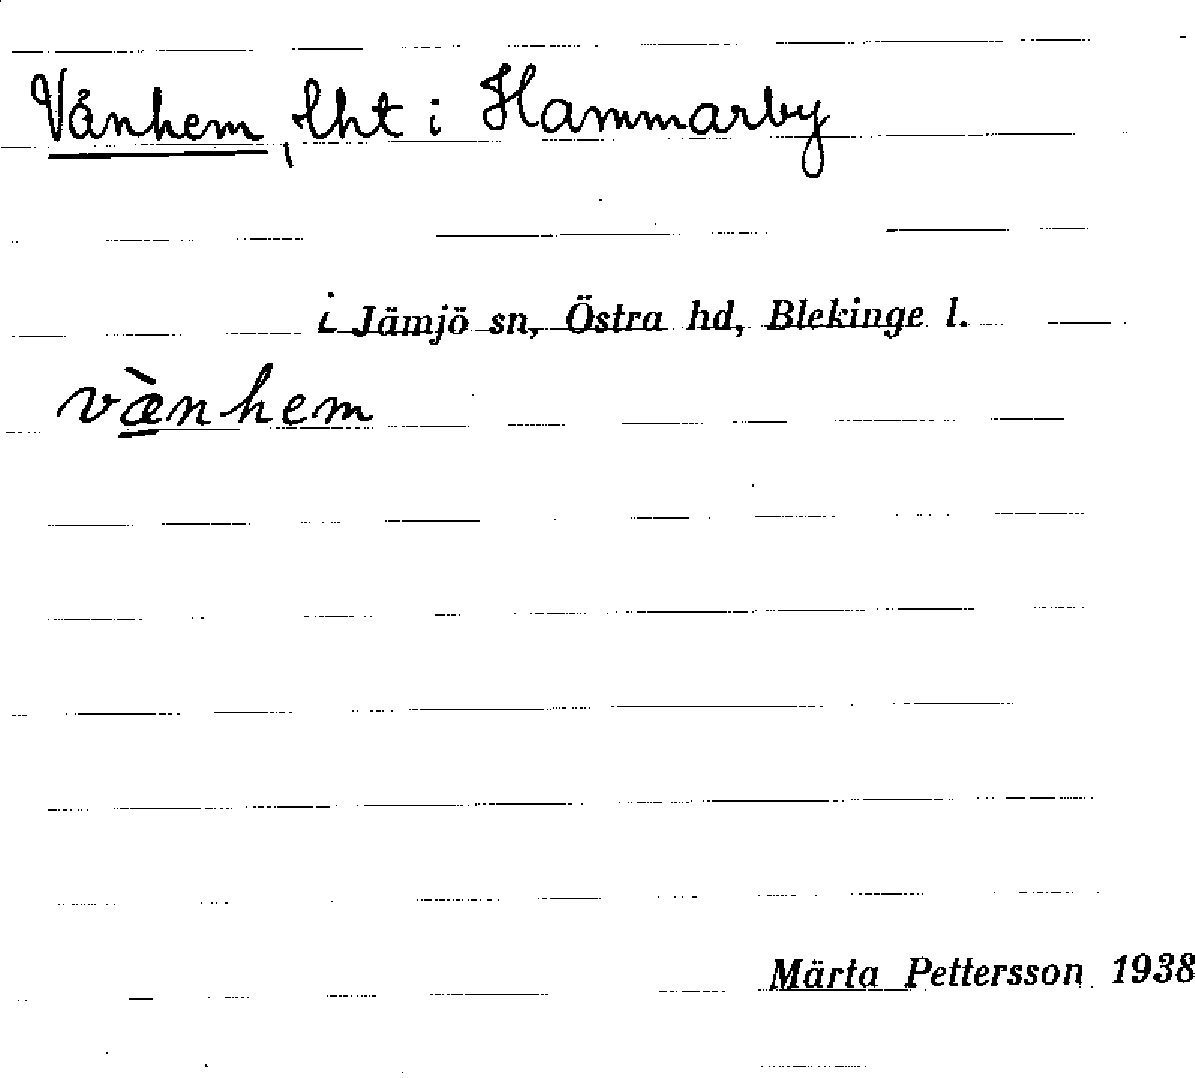 Vänhem, lht i Hammarby
i Jämjö sn, Östra hd, Blekinge l.
væ̀nhem
Märta Pettersson 1938